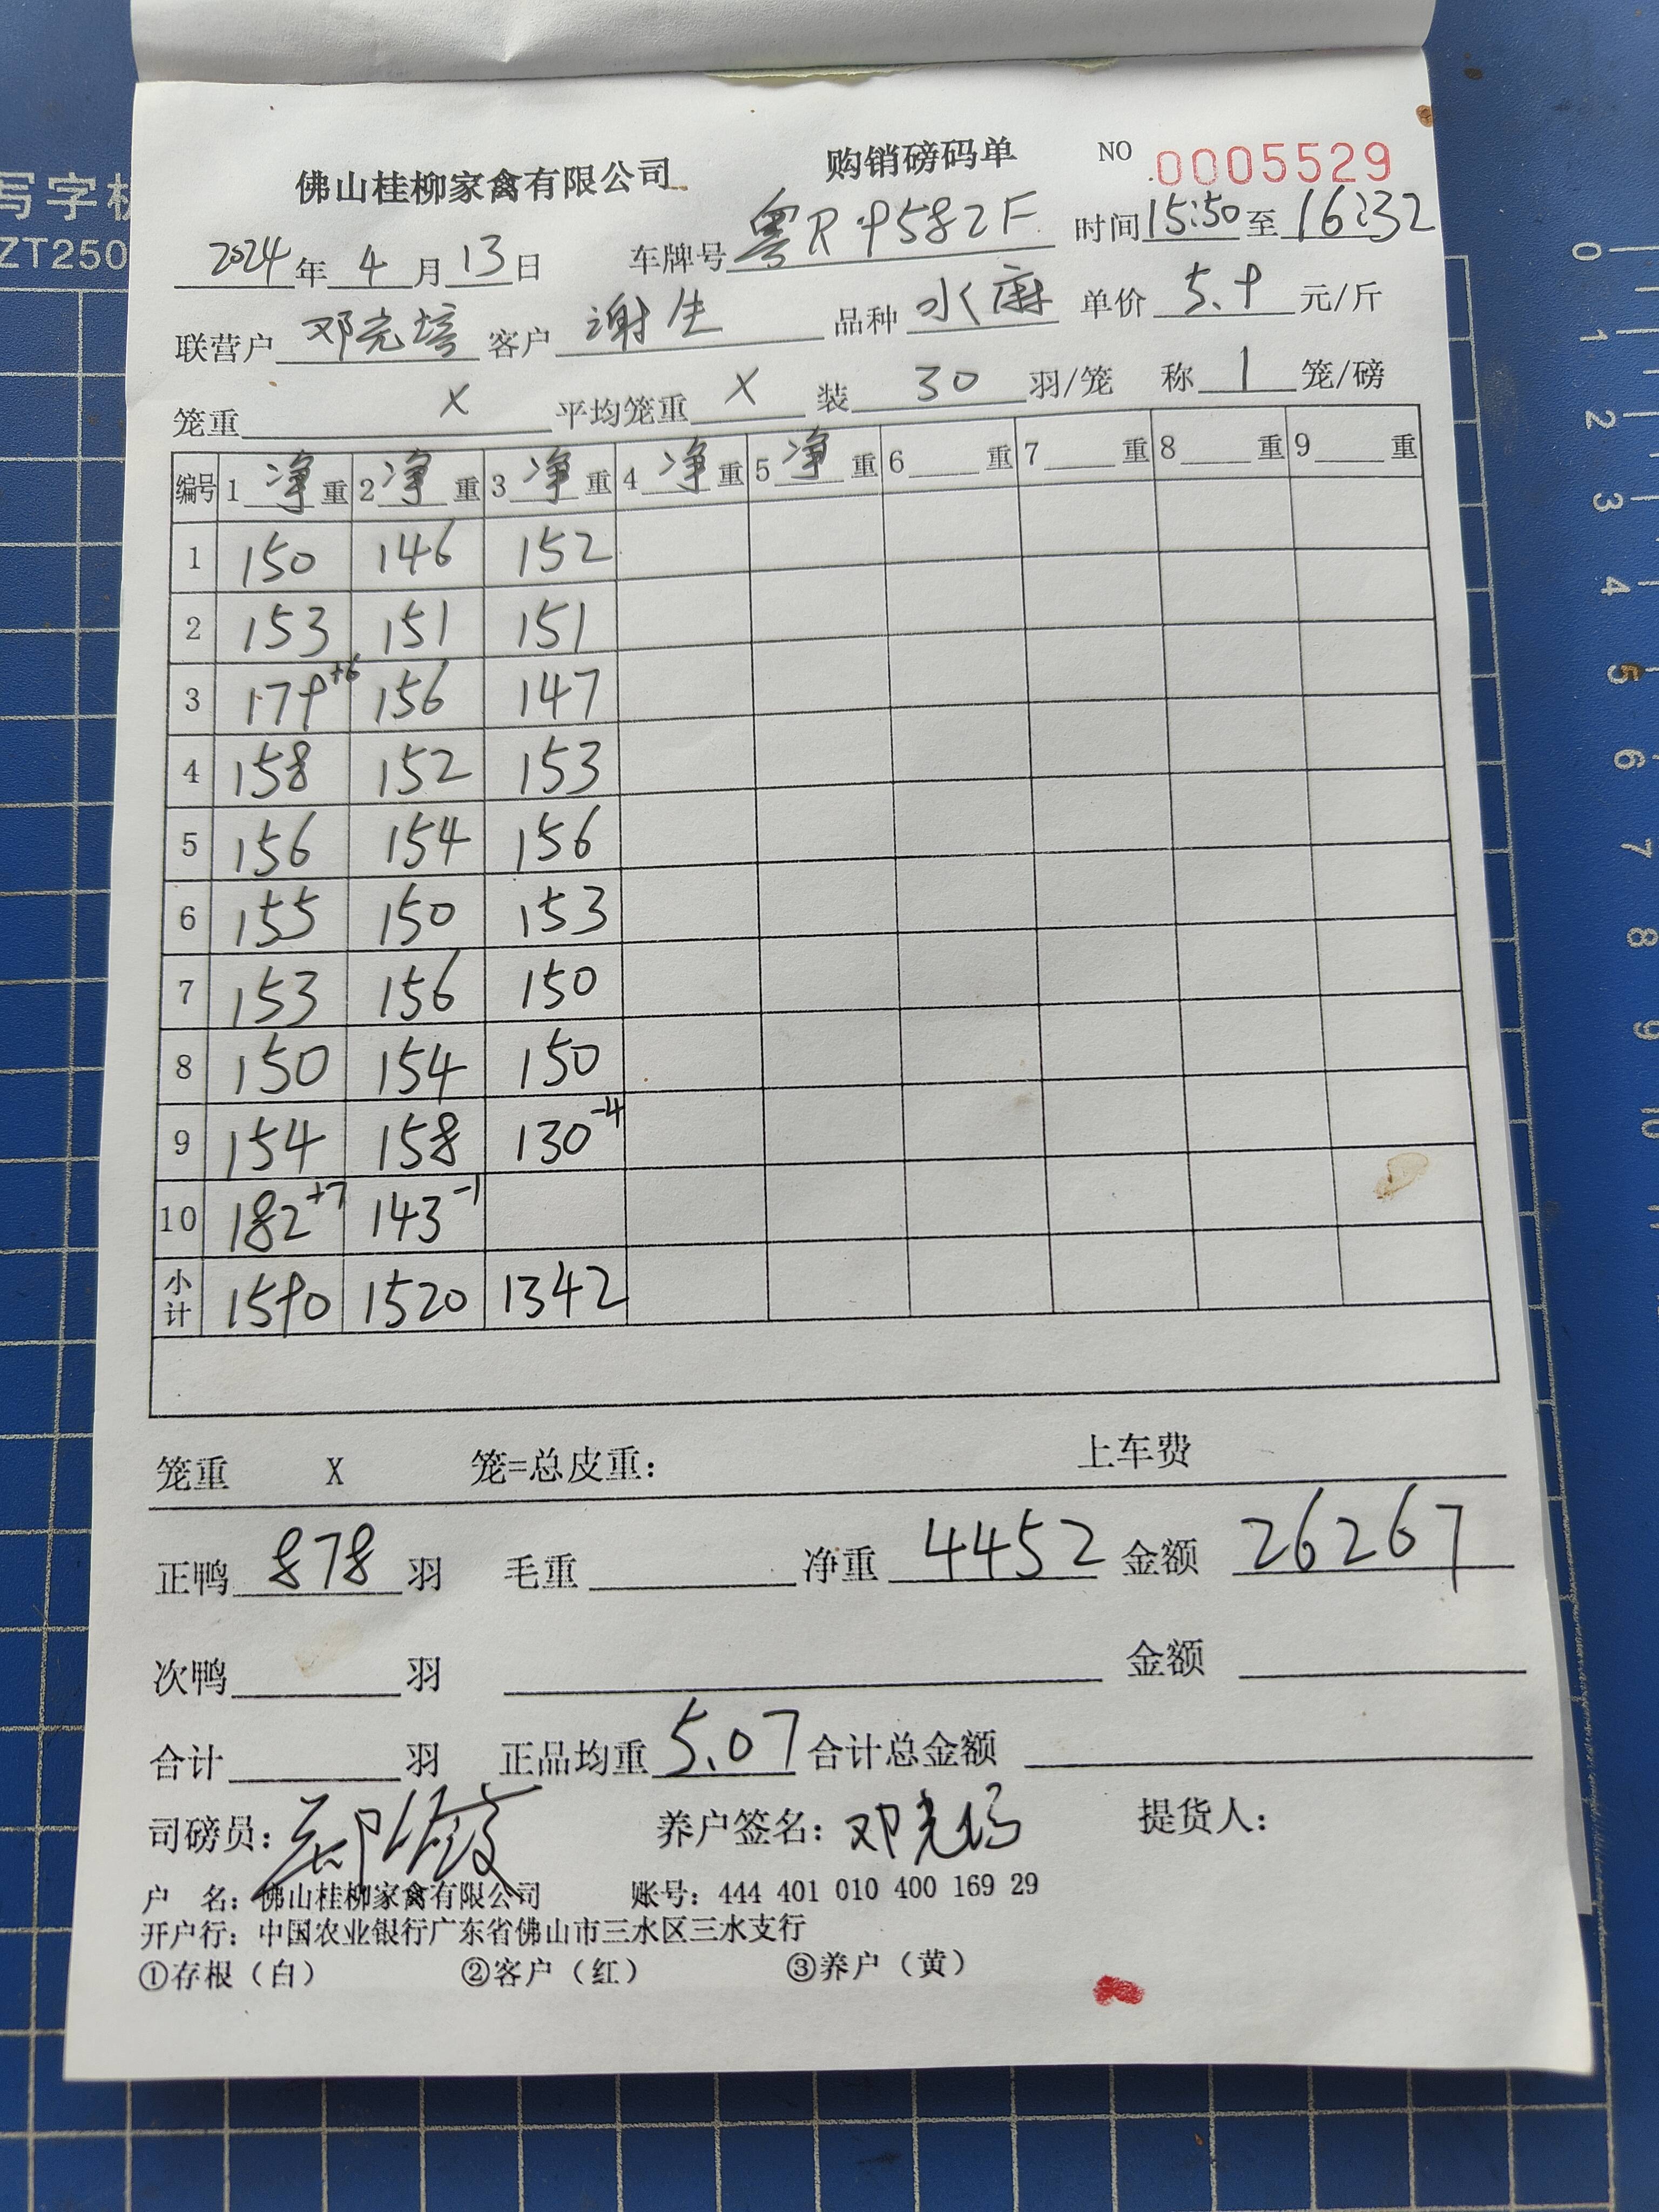 写字板
ZT250
佛山桂柳家禽有限公司 购销磅码单 NO 0005529
2024年4月13日 车牌号 粤R9582F 时间15:50至16:32
联营户 邓光培 客户 谢生 品种 水麻 单价 5.9 元/斤
笼重 X 平均笼重 X 装 30 羽/笼 称 1 笼/磅
编号 1 净 重 2 净 重 3 净 重 4 净 重 5 净 重 6 重 7 重 8 重 9 重
1 150 146 152
2 153 151 151
3 179+6 156 147
4 158 152 153
5 156 154 156
6 155 150 153
7 153 156 150
8 150 154 150
9 154 158 130-4
10 182+7 143-1
小计 1590 1520 1342
笼重 X 笼=总皮重: 上车费
正鸭 878 羽 毛重 净重 4452 金额 26267
次鸭 羽 金额
合计 羽 正品均重 5.07 合计总金额
司磅员: 养户签名: 邓光培 提货人:
户 名: 佛山桂柳家禽有限公司 账号: 444 401 010 400 169 29
开户行: 中国农业银行广东省佛山市三水区三水支行
①存根（白） ②客户（红） ③养户（黄）
0
1
2
3
4
5
6
7
8
9
10